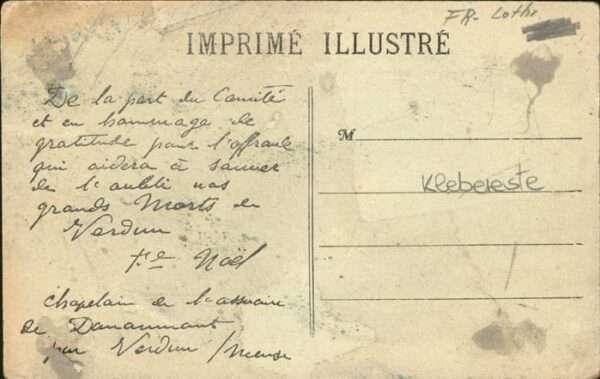 FR- Lothr
IMPRIMÉ ILLUSTRÉ
De la part du Comité
et en hommage de
gratitude pour l'offrande
qui aidera à sauver
de l'oubli nos
grands Morts de
Verdun
Noël
Chapelain de l'ossuaire
de Douaumont
par Verdun / Meuse
M
Klebereste